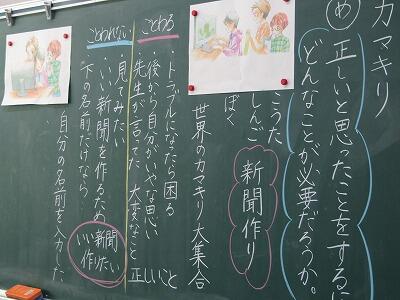 カマキリ
め 正しいと思ったことをするに
どんなことが必要だろうか。
こうた
しんご
ぼく
新聞作り
世界のカマキリ大集合
ことわる
トラブルになったら困る
後から自分がいやな思い
先生が言ってた 大変なこと
正しいこと
ことわれない
見てみたい
・いい新聞を作るため
下の名前だけなら
いい新聞
作りたい
自分の名前を入力した